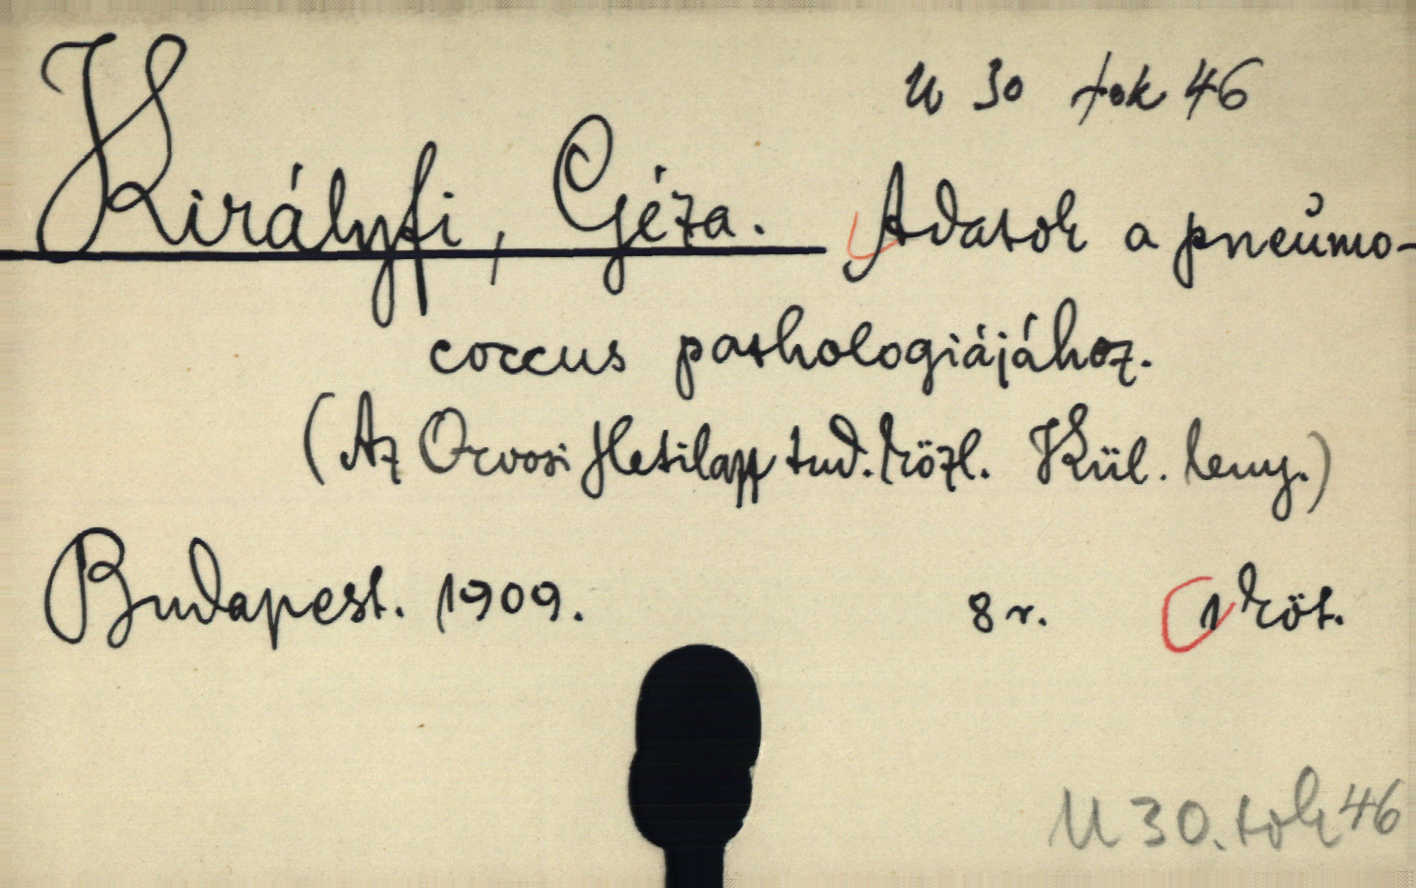 U 30 tok 46
Királyfi, Géza. Adatok a pneumo-
coccus pathologiájához.
(Az Orvosi Hetilap tud. közl. Kül. leny.)
Budapest. 1909. 8r. 1 köt.
U 30. tok 46